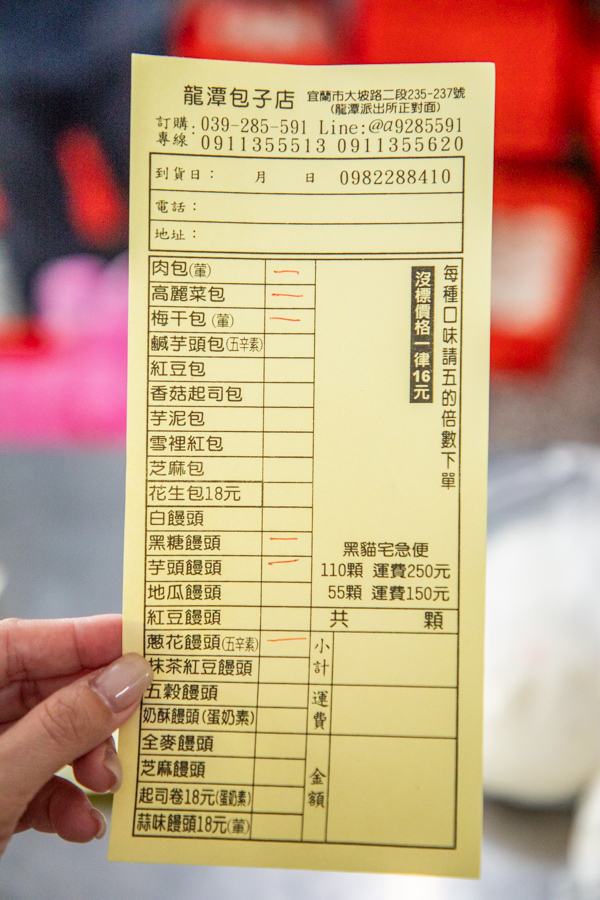 龍潭包子店 宜蘭市大坡路二段235-237號
(龍潭派出所正對面)
訂購專線: 039-285-591 Line:@a9285591
0911355513 0911355620
到貨日: 月 日 0982288410
電話:
地址:
肉包(葷) 一
高麗菜包 一
梅干包(葷) 一
鹹芋頭包(五辛素)
紅豆包
香菇起司包
芋泥包
雪裡紅包
芝麻包
花生包18元
白饅頭
黑糖饅頭 一
芋頭饅頭 一
地瓜饅頭
紅豆饅頭
蔥花饅頭(五辛素) 一
抹茶紅豆饅頭
五穀饅頭
奶酥饅頭(蛋奶素)
全麥饅頭
芝麻饅頭
起司卷18元(蛋奶素)
蒜味饅頭18元(葷)
每種口味請五的倍數下單
沒標價格一律16元
黑貓宅急便
110顆 運費250元
55顆 運費150元
共 顆
小計
運費
金額